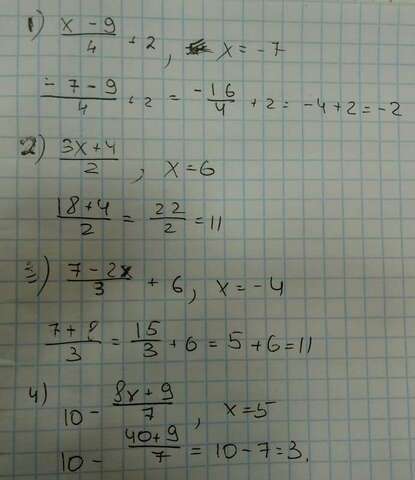 1) (x - 9)/4 + 2, x = -7
(-7 - 9)/4 + 2 = -16/4 + 2 = -4 + 2 = -2
2) (3x + 4)/2, x = 6
(18 + 4)/2 = 22/2 = 11
3) (7 - 2x)/3 + 6, x = -4
(7 + 8)/3 = 15/3 + 6 = 5 + 6 = 11
4) 10 - (8x + 9)/7, x = 5
10 - (40 + 9)/7 = 10 - 7 = 3.